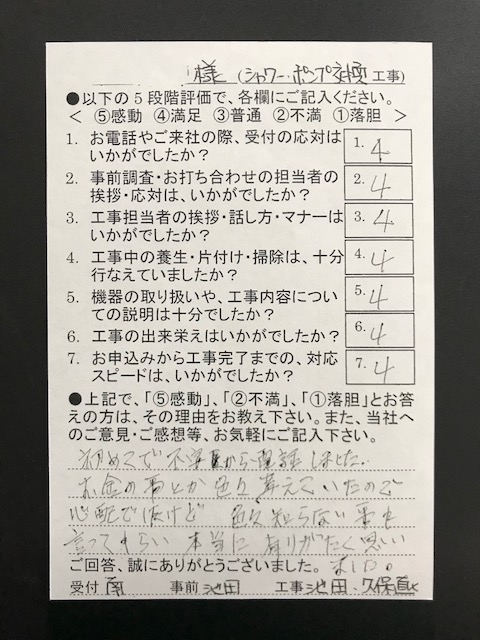 様 (シャワー・ポンプ交換 工事)
●以下の5段階評価で、各欄にご記入ください。
＜ ⑤感動 ④満足 ③普通 ②不満 ①落胆 ＞
1. お電話やご来社の際、受付の応対は
いかがでしたか？
1. 4
2. 事前調査・お打ち合わせの担当者の
挨拶・応対は、いかがでしたか？
2. 4
3. 工事担当者の挨拶・話し方・マナーは
いかがでしたか？
3. 4
4. 工事中の養生・片付け・掃除は、十分
行なえていましたか？
4. 4
5. 機器の取り扱いや、工事内容につい
ての説明は十分でしたか？
5. 4
6. 工事の出来栄えはいかがでしたか？
6. 4
7. お申込みから工事完了までの、対応
スピードは、いかがでしたか？
7. 4
●上記で、「⑤感動」、「②不満」、「①落胆」とお答
えの方は、その理由をお教え下さい。また、当社へ
のご意見・ご感想等、お気軽にご記入下さい。
初めてで 不安だから電話しました.
お金の事とか色々考えていたので
心配で 色々知らない事も
言ってもらい 本当に ありがたく思い
ました。
ご回答、誠にありがとうございました。
受付 南 事前 池田 工事 池田・久保